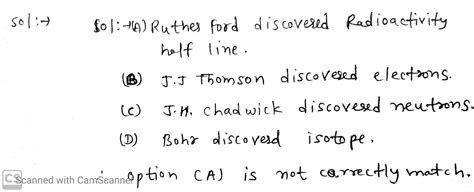 sol:→ Sol:→(A) Ruther ford discovered Radioactivity
half line.
(B) J.J Thomson discovered electrons.
(C) J.H. chadwick discovered neutrons.
(D) Bohr discoverd isotope.
option (A) is not correctly match.
CS Scanned with CamScanner